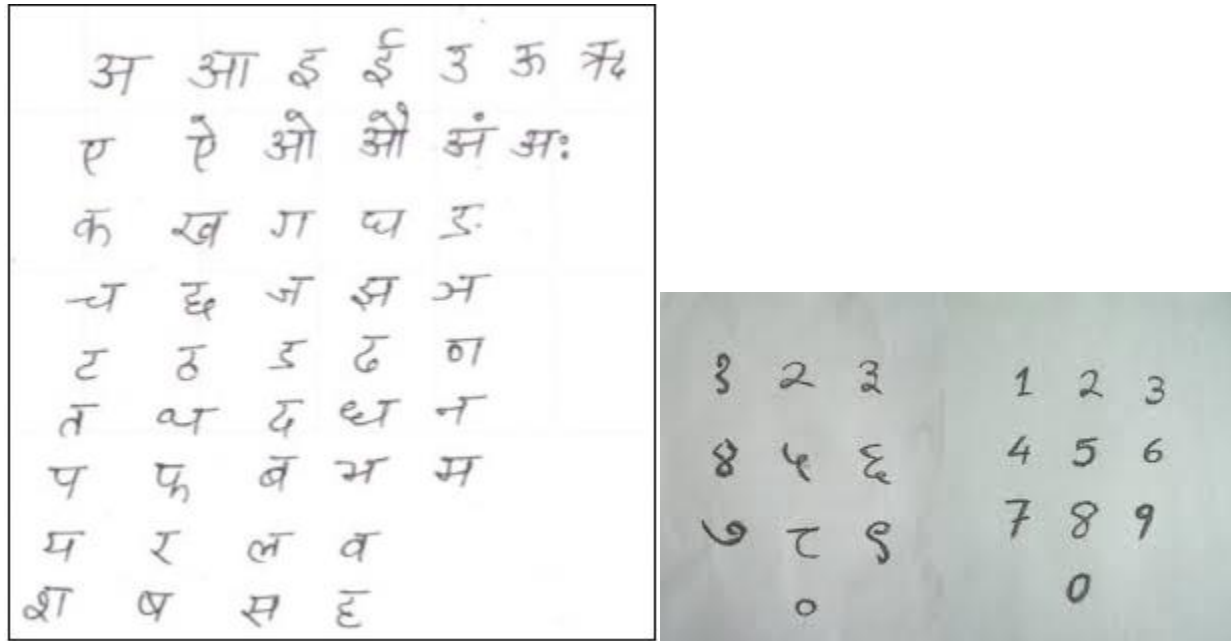 अ आ इ ई उ ऊ ऋ
ए ऐ ओ औ अं अः
क ख ग घ ङ
च छ ज झ ञ
ट ठ ड ढ ण
त थ द ध न
प फ ब भ म
य र ल व
श ष स ह
१ २ ३
४ ५ ६
७ ८ ९
०
1 2 3
4 5 6
7 8 9
0